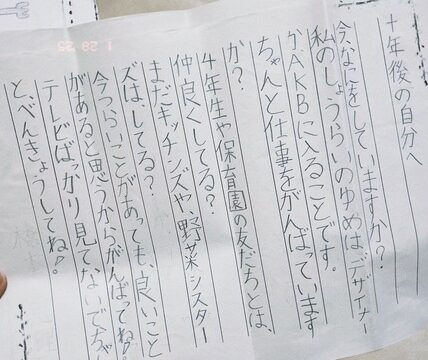 4年後の自分へ
今なにをしていますか？
私のしょうらいのゆめは、デザイナー
かAKBに入ることです。
ちゃんと仕事をがんばっています
か？
4年生や保育園の友だちとは、
仲良くしてる？
まだキッチンズや、野菜シスター
ズは、してる？
今つらいことがあっても、良いこと
があると思うからがんばってね！
テレビばっかり見てないでちゃん
とべんきょうしてね！
1 28 '25